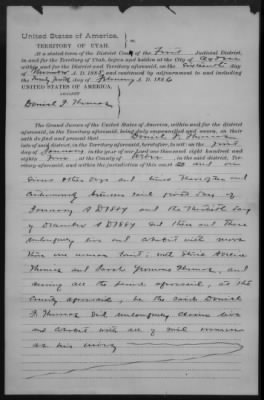 United States of America,
TERRITORY OF UTAH.
At a stated term of the District Court of the First Judicial District,
in and for the Territory of Utah, begun and holden at the City of
within and for the District and Territory aforesaid, on the day
of A.D. 1885, and continued by adjournment to and including
the day of February A.D. 1886
UNITED STATES OF AMERICA,
AGAINST
Daniel F. Thomas
The Grand Jurors of the United States of America, within and for the district
aforesaid, in the Territory aforesaid, being duly empanelled and sworn, on their
oath do find and present that Daniel F. Thomas
late of said district, in the Territory aforesaid, heretofore, to-wit: on the first
day of January in the year of our Lord one thousand eight hundred and
eighty four at the County of in the said district, Territory
aforesaid, and within the jurisdiction of this court on
divers other days and times thereafter and
continuously between said first day of
January A.D. 1884 and the Thirtieth day
of December A.D. 1884 did then and there
unlawfully live and cohabit with more
than one woman towit: with
Thomas and Sarah Thomas, and
during all the period aforesaid, at the
County aforesaid, he the said Daniel
F. Thomas did unlawfully claim live
and cohabit with all of said women
as his wives